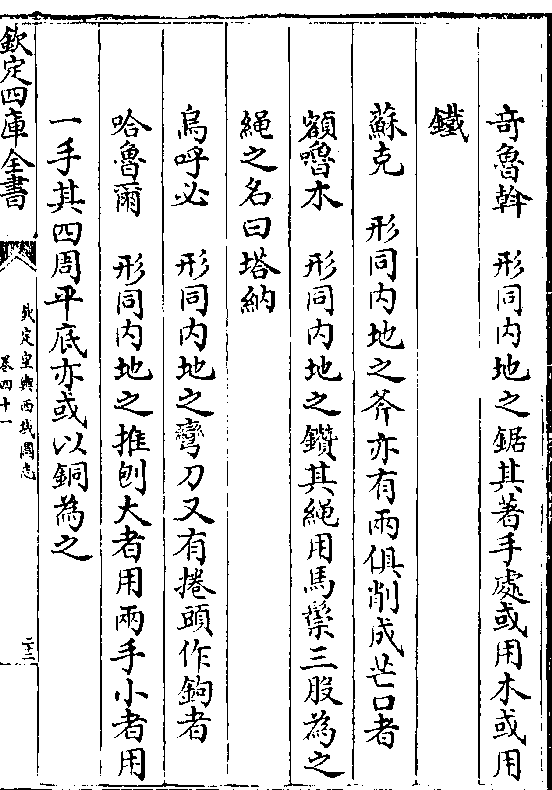 奇魯斡　形同内地之鋸其著手處或用木或用
鐵
蘇克　形同内地之斧亦有兩俱削成芒口者
額嚕木　形同内地之鑽其繩用馬鬃三股為之
繩之名曰塔納
烏呼必　形同内地之彎刀又有捲頭作鉤者
哈魯爾　形同内地之推刨大者用兩手小者用
一手其四周平底亦或以銅為之
欽定四庫全書
欽定皇輿西域圖志
卷四十一
二十二